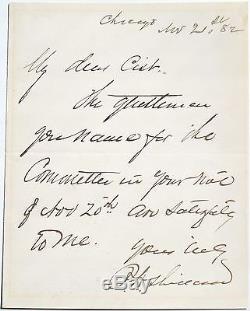 Chicago Nov 21st, 82
My dear Cist.
The gentlemen
you name for the
Committee in your note
of Nov 20th are satisfactory
to me.
Yours truly
P H Sheridan